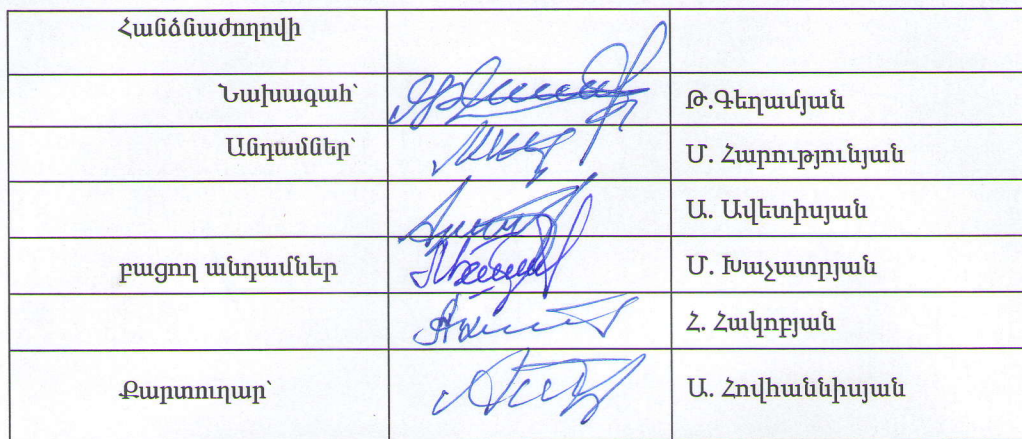 Հանձնաժողովի
Նախագահ՝ Թ.Գեղամյան
Անդամներ՝ Մ. Հարությունյան
Ա. Ավետիսյան
բացող անդամներ Մ. Խաչատրյան
Հ. Հակոբյան
Քարտուղար՝ Ա. Հովհաննիսյան